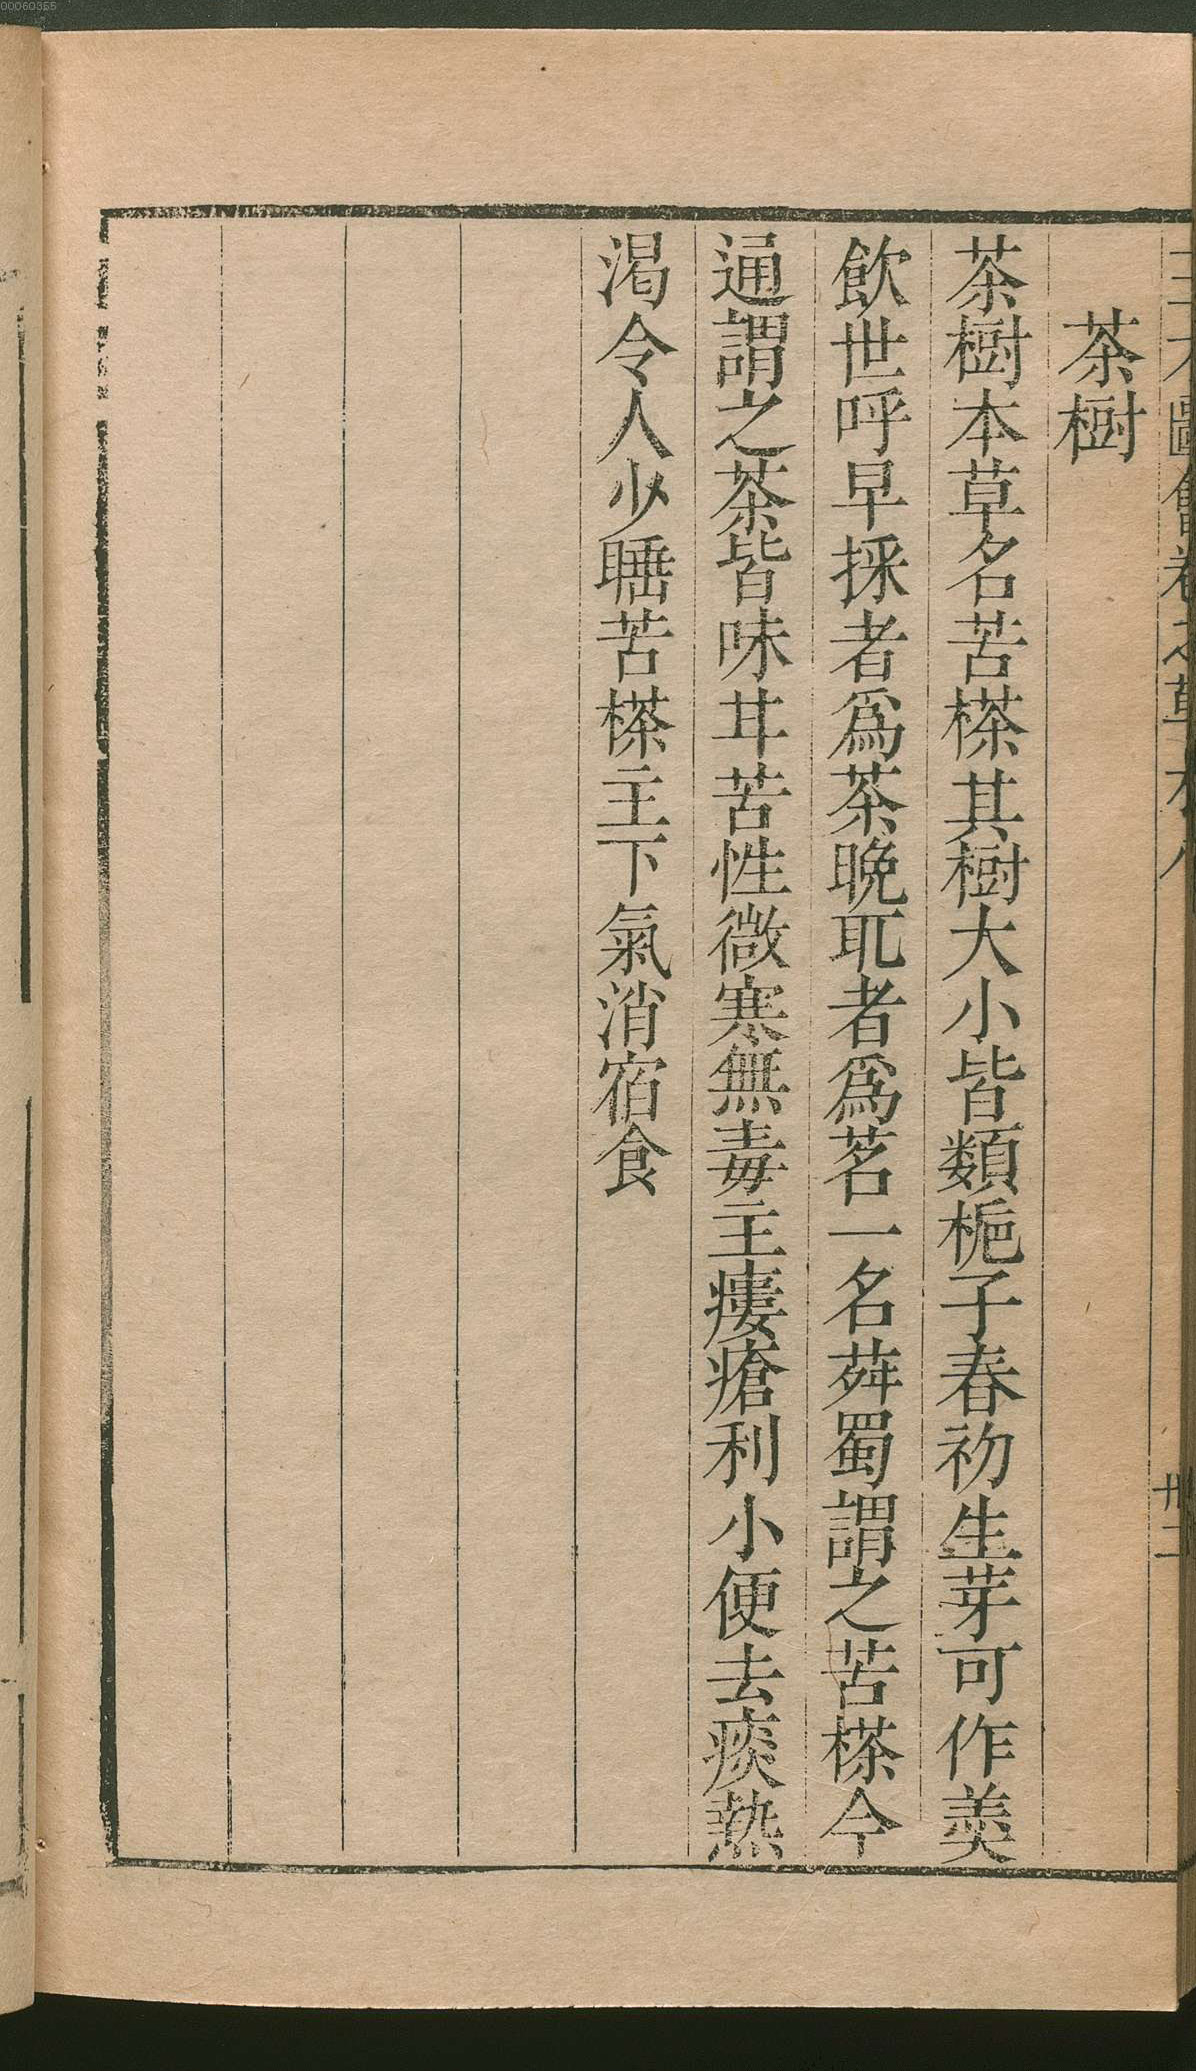 00060355
三才圖會卷之草木八
卅二
茶樹
茶樹本草名苦𣘻其樹大小皆類梔子春初生芽可作羹
飲世呼早採者為茶晚取者為茗一名荈蜀謂之苦𣘻今
通謂之茶皆味甘苦性微寒無毒主瘻瘡利小便去痰熱
渴令人少睡苦𣘻主下氣消宿食